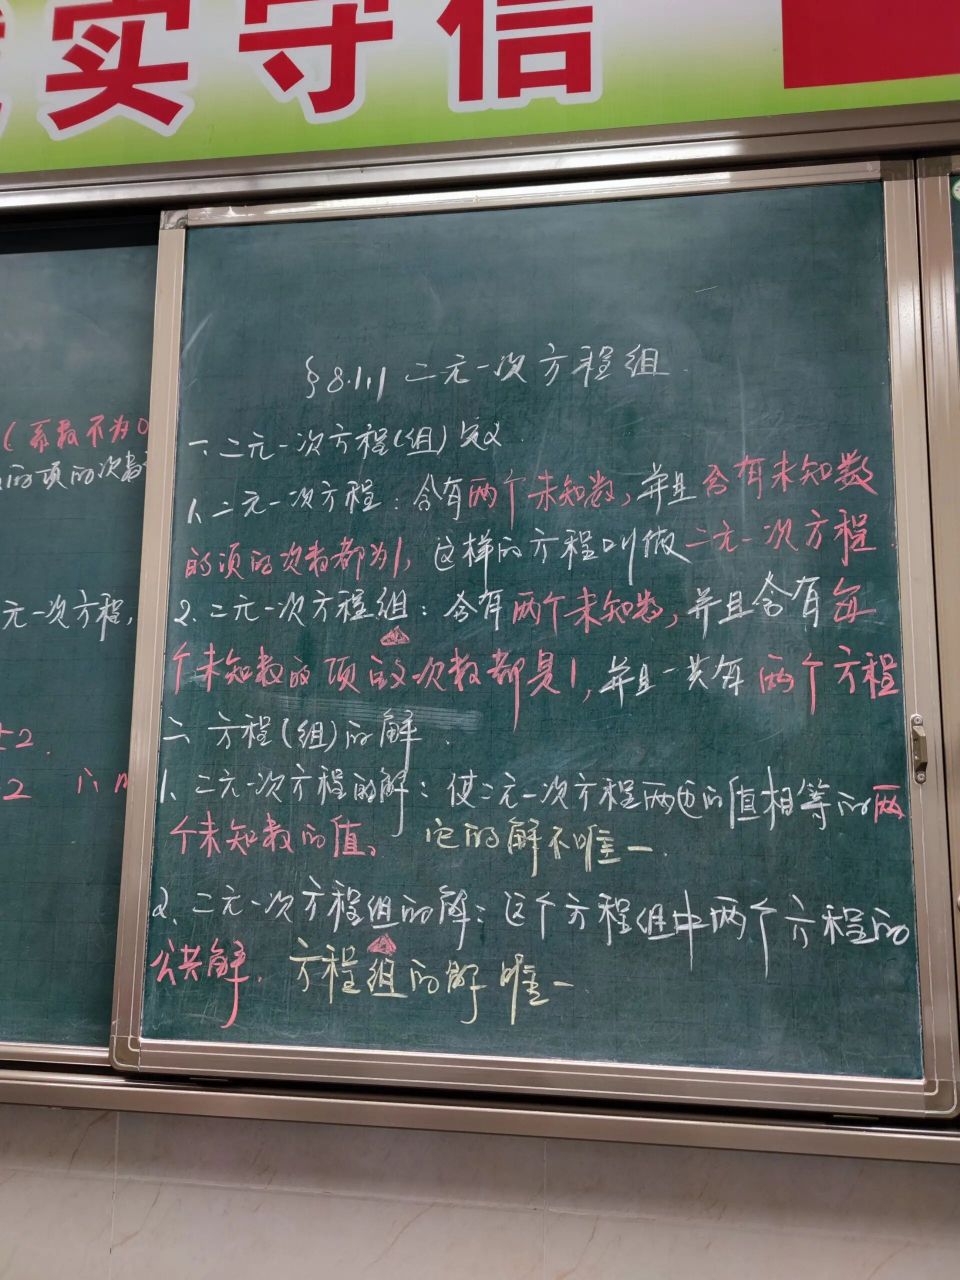 实守信
§8.1.1 二元一次方程组
一.二元一次方程(组)定义.
1、二元一次方程:含有两个未知数,并且含有未知数
的项的次数都为1,这样的方程叫做二元一次方程.
2.二元一次方程组:含有两个未知数,并且含有每
个未知数的项的次数都是1,并且一共有两个方程
二 方程(组)的解.
1、二元一次方程的解:使二元一次方程两边的值相等的两
个未知数的值。 它的解不唯一.
2、二元一次方程组的解:这个方程组中两个方程的
公共解. 方程组的解唯一.
(系数不为0
的项的次数
元一次方程,
2.
2